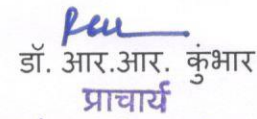 डॉ. आर.आर. कुंभार
प्राचार्य